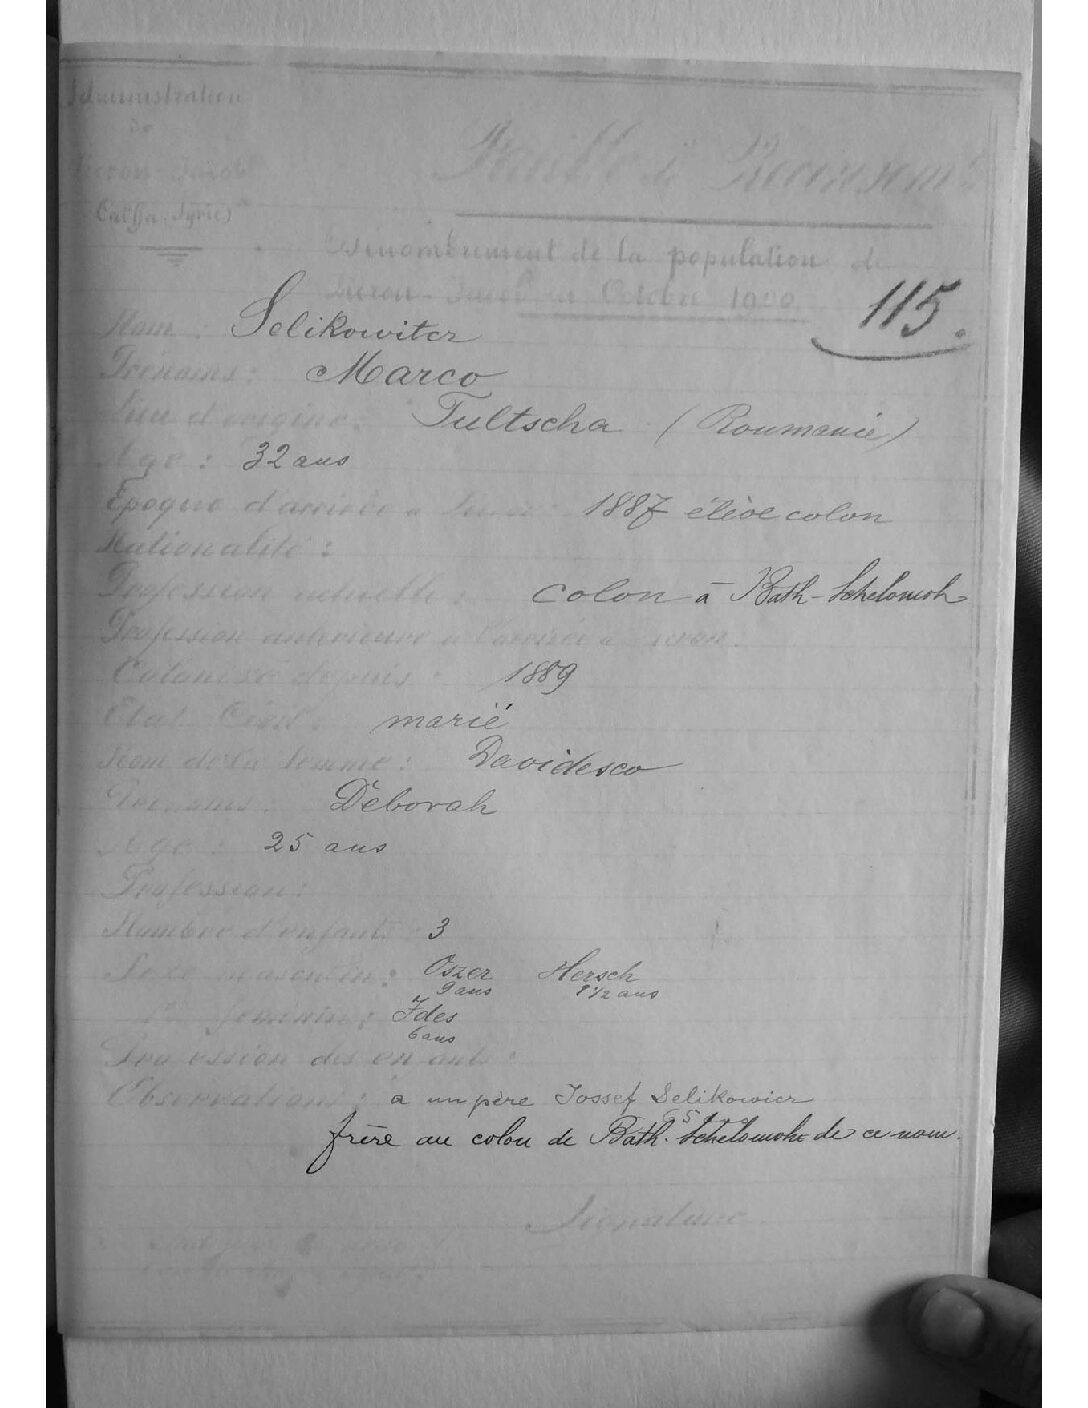 Administration
de
Zicron-Jacob
Caïffa (Syrie)
Feuille de Recensemt
Dénombrement de la population de
Zicron-Jacob en Octobre
115.
Nom : Selikowitcz
Prénoms : Marco
Lieu d'origine : Tultscha (Roumanie)
Age : 32 ans
Epoque d'arrivée à Zicron : 1887 élève colon
Nationalité :
Profession actuelle : colon à Bath-Schelomoh
Profession antérieure à l'arrivée à Zicron.
Colonisé depuis : 1889
Etat Civil : marié
Nom de la femme : Davidesco
Prénoms : Déborah
Age : 25 ans
Profession :
Nombre d'enfants : 3
Sexe masculin : Oszer Hersch
9 ans 1 1/2 ans
féminin : Ides
6 ans
Profession des enfants :
Observations : a un père Jossef Selikowicz
65
frère au colon de Bath-Schelomoh de ce nom.
Signature